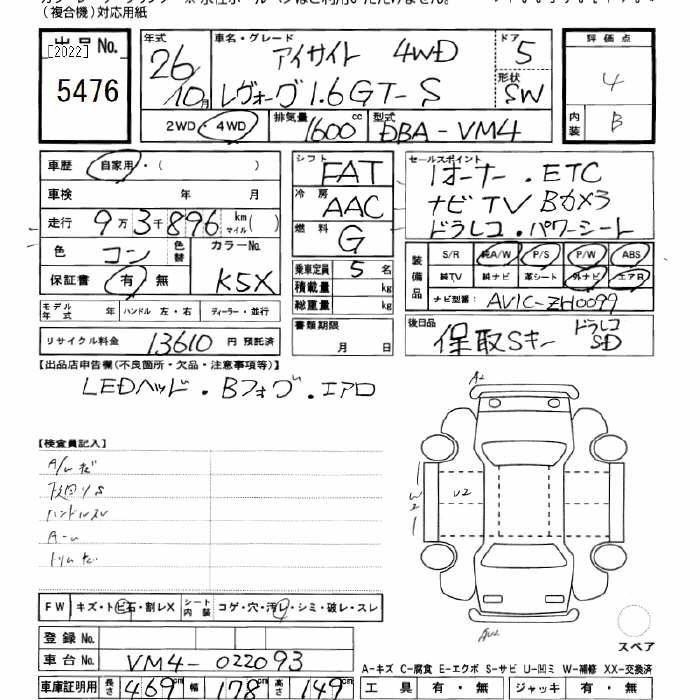 （複合機）対応用紙
出品No. 年式 車名・グレード ドア 評価点
[2022] 26 アイサイト 4WD 5 4
5476 10月 レヴォーグ1.6GT-S 形状 SW
2WD・4WD 排気量 1600cc 型式 DBA-VM4 内装 B
車歴 自家用・( ) シフト FAT セールスポイント
1オーナー・ETC
車検 年 月 冷房 AAC ナビTV Bカメラ
走行 9万3千896km マイル( ) 燃料 G ドラレコ・パワーシート
色 コン 色替 カラーNo. 乗車定員 5名 装備品 S/R 純A/W P/S P/W ABS
保証書 有 無 K5X 積載量 kg 純TV 純ナビ 革シート 外ナビ エアB
総重量 kg ナビ型番: AVIC-ZH0099
モデル年式 年 ハンドル 左・右 ディーラー・並行 書類期限 後日品
リサイクル料金 13610 円 預託済 月 日 保取Sキー ドラレコSD
【出品店申告欄(不良箇所・欠品・注意事項等)】
LEDヘッド・Bフォグ・エアロ
A2
【検査員記入】
W2 U2
ハンドルスレ
FW キズ・トビ石・割レX シート内装 コゲ・穴・汚レ・シミ・破レ・スレ
登録No. スペア
車台No. VM4-022093
A-キズ C-腐食 E-エクボ S-サビ U-凹ミ W-補修 XX-交換済
車庫証明用 長さ 469cm 幅 178cm 高さ 149cm 工具 有・無 ジャッキ 有・無